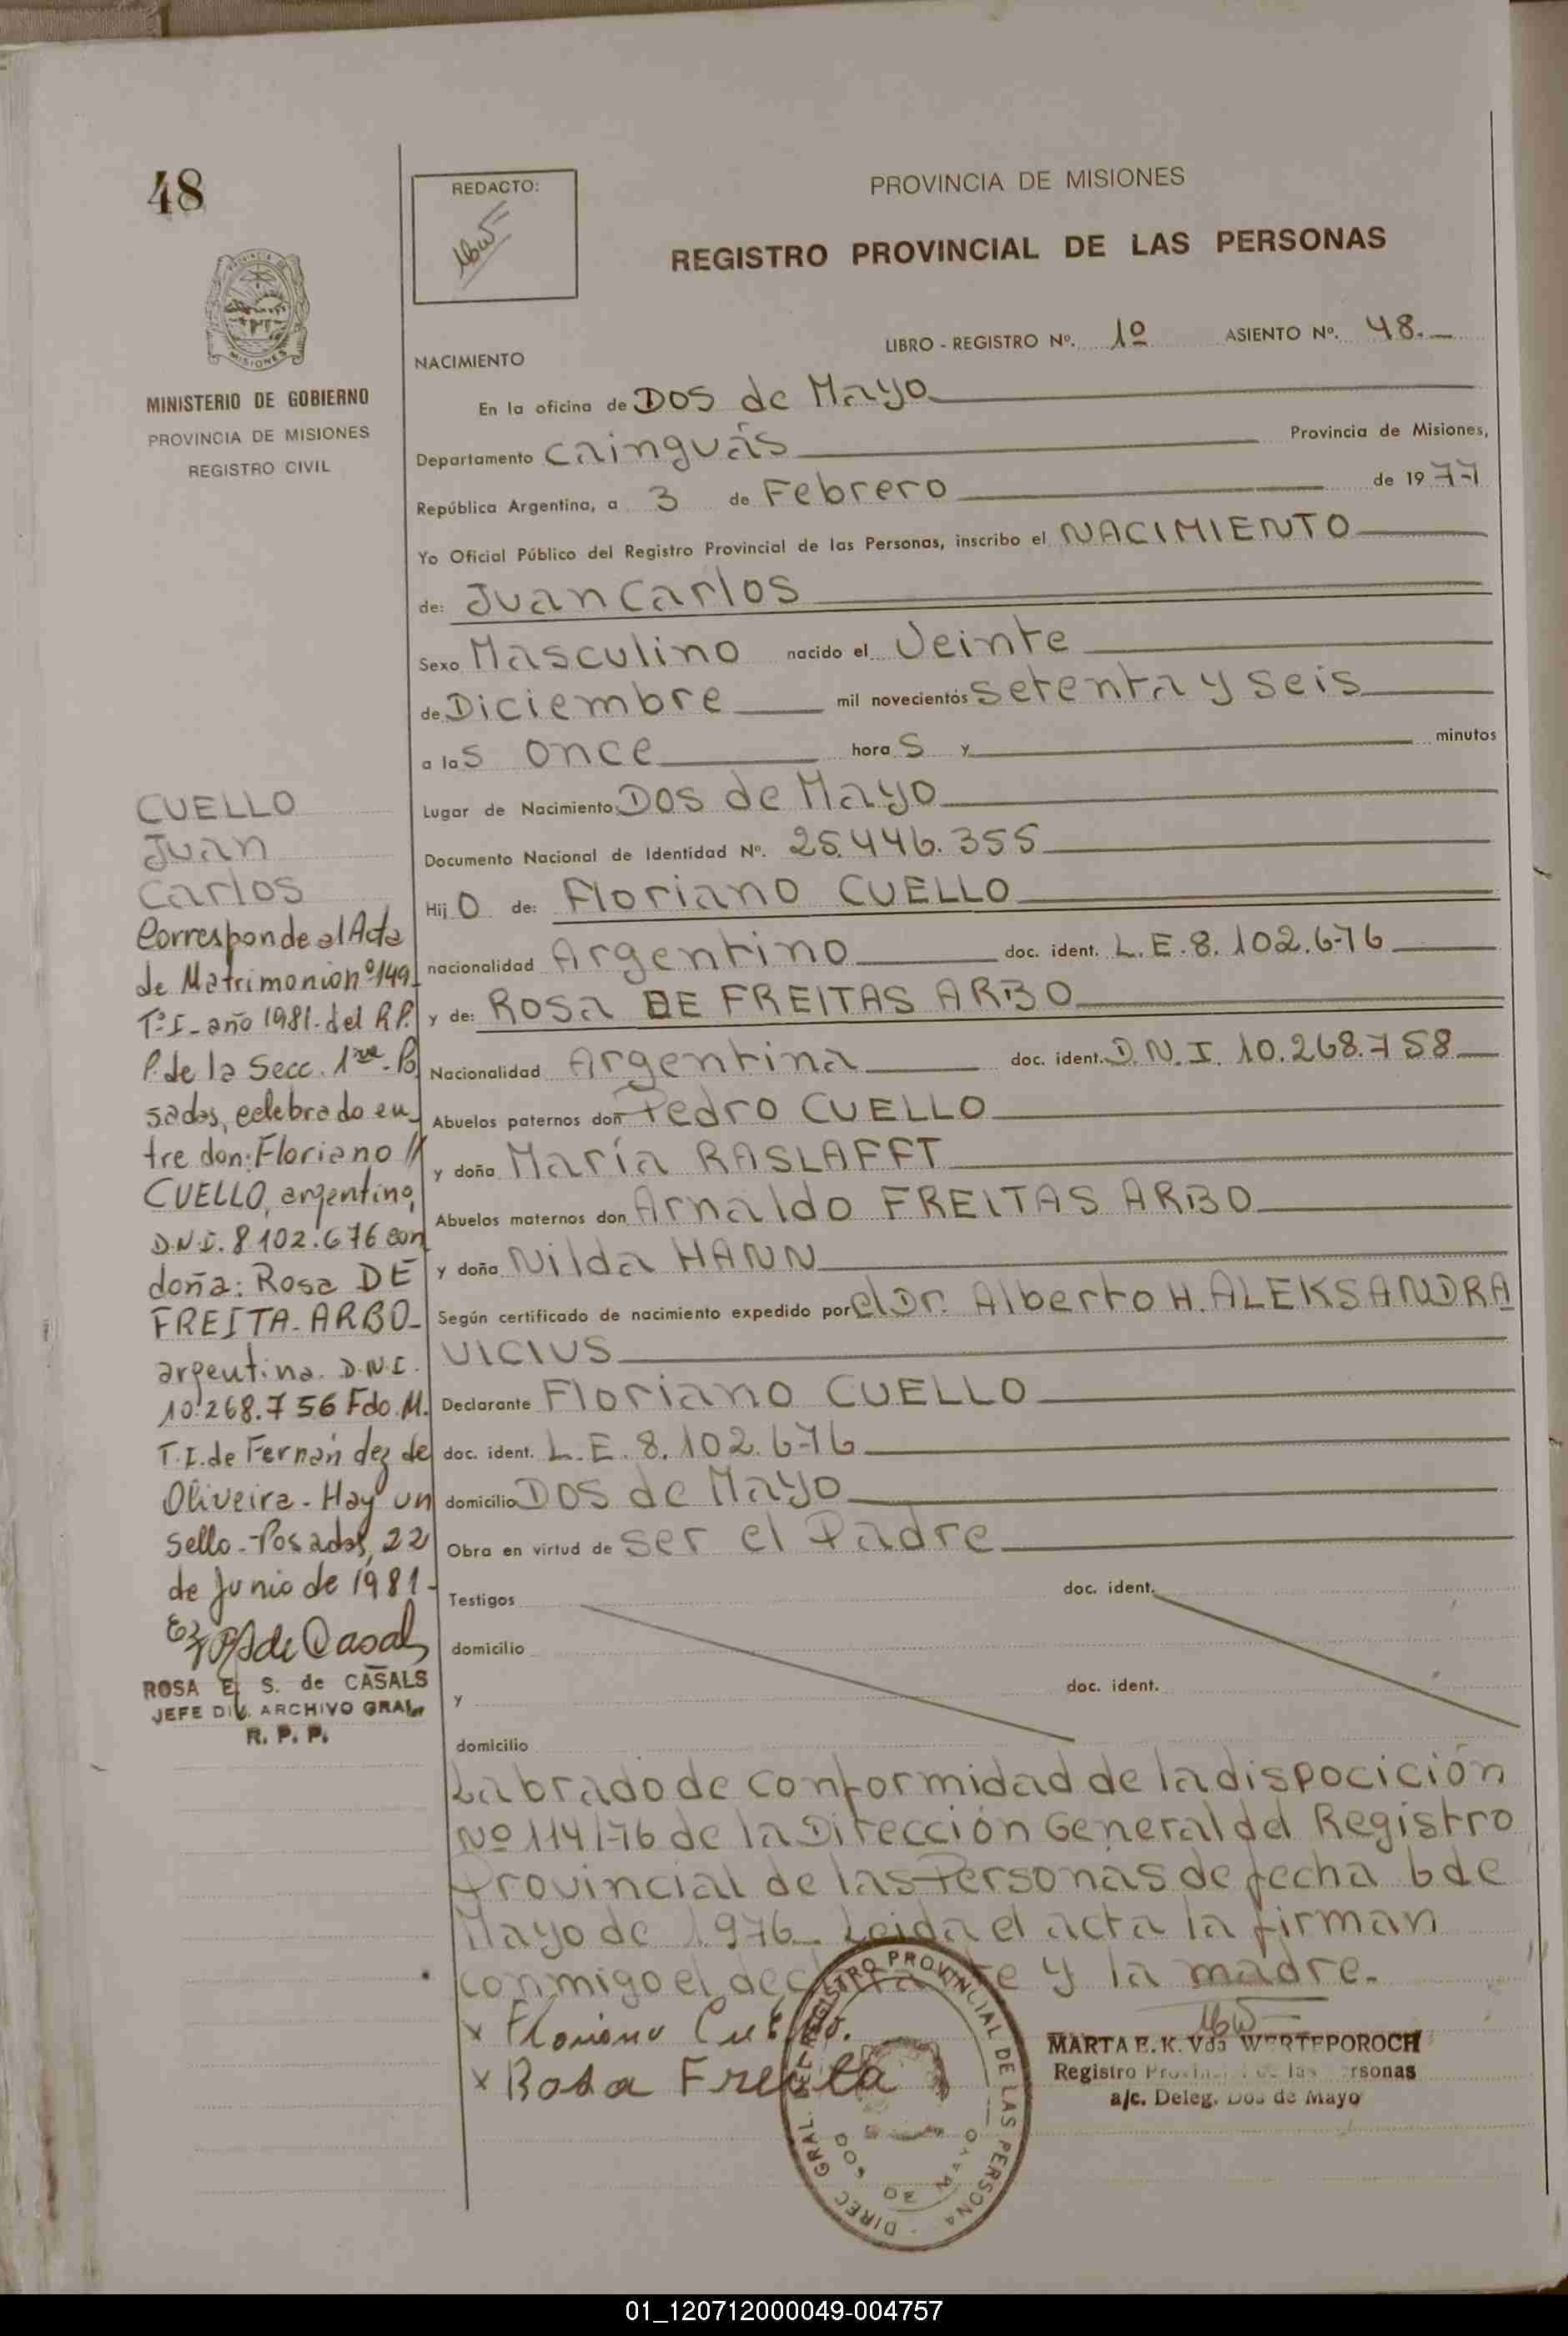 48
REDACTO:
PROVINCIA DE MISIONES
REGISTRO PROVINCIAL DE LAS PERSONAS
PROVINCIA DE
MISIONES
MINISTERIO DE GOBIERNO
PROVINCIA DE MISIONES
REGISTRO CIVIL
LIBRO - REGISTRO Nº. 1º ASIENTO Nº. 48.
NACIMIENTO
En la oficina de Dos de Mayo
Departamento Cainguás Provincia de Misiones,
República Argentina, a 3 de Febrero de 1977
Yo Oficial Público del Registro Provincial de las Personas, inscribo el NACIMIENTO
de: Juan Carlos
Sexo Masculino nacido el Veinte
de Diciembre mil novecientos setenta y seis
a las once horas y minutos
Lugar de Nacimiento Dos de Mayo
Documento Nacional de Identidad Nº. 25.446.355
Hijo de: Floriano CUELLO
nacionalidad Argentino doc. ident. L.E. 8.102.676
y de: Rosa DE FREITAS ARBO
Nacionalidad Argentina doc. ident. D.N.I. 10.268.758
Abuelos paternos don Pedro CUELLO
y doña María RASLAFFT
Abuelos maternos don Arnaldo FREITAS ARBO
y doña Nilda HANN
Según certificado de nacimiento expedido por el Dr. Alberto H. ALEKSANDRA
VICIUS
Declarante Floriano CUELLO
doc. ident. L.E. 8.102.676
domicilio Dos de Mayo
Obra en virtud de ser el Padre
Testigos doc. ident.
domicilio
y doc. ident.
domicilio
Labrado de conformidad de la dispocición
Nº 114/76 de la Dirección General del Registro
Provincial de las Personas de fecha 6 de
Mayo de 1976. Leida el acta la firman
conmigo el declarante y la madre.
x Floriano Cuello.
x Rosa Freita
MARTA E. K. Vda WERTEPOROCH
Registro Provincial de las Personas
a/c. Deleg. Dos de Mayo
DIREC. GRAL. DEL REGISTRO PROVINCIAL DE LAS PERSONA
DOS DE MAYO
CUELLO
Juan
Carlos
Corresponde al Acta
de Matrimonio nº 149
Tº I - año 1981 - del R.P.
P. de la Secc. 1ra - Po
sadas, celebrado en
tre don: Floriano //
CUELLO, argentino,
D.N.I. 8 102.676 con
doña: Rosa DE
FREITA - ARBO -
argentina. D.N.I.
10.268.756 Fdo. M.
T.I. de Fernandez de
Oliveira - Hay un
sello - Posadas, 22
de Junio de 1981 -
ROSA E. S. de CASALS
JEFE DIV. ARCHIVO GRAL.
R. P. P.
01_120712000049-004757